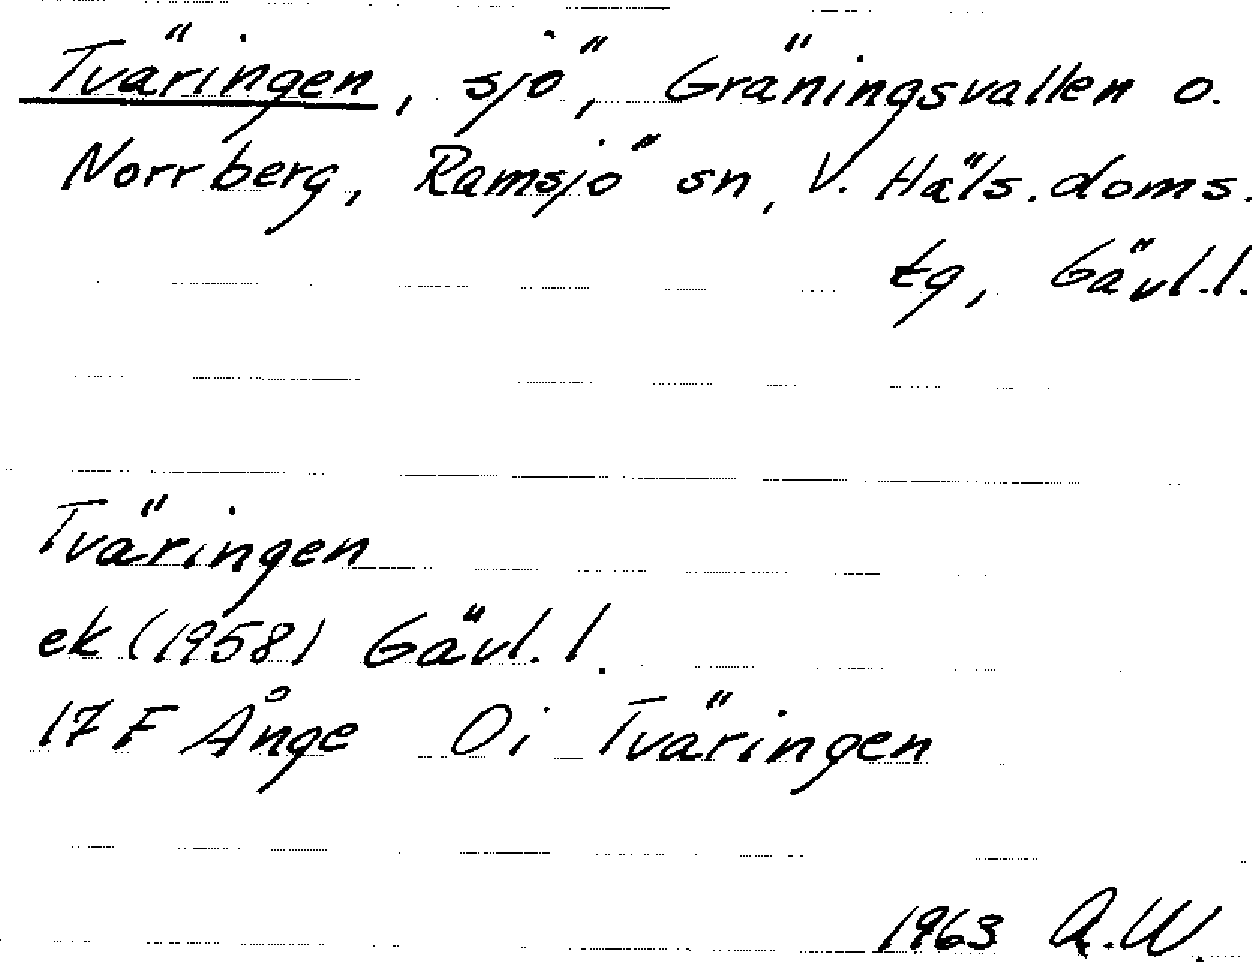 Tväringen, sjö, Gräningsvallen o.
Norrberg, Ramsjö sn, V. Häls. doms.
tg, Gävl.l.
Tväringen
ek (1958) Gävl.l.
17 F Ånge 0i Tväringen
1963 A.W.